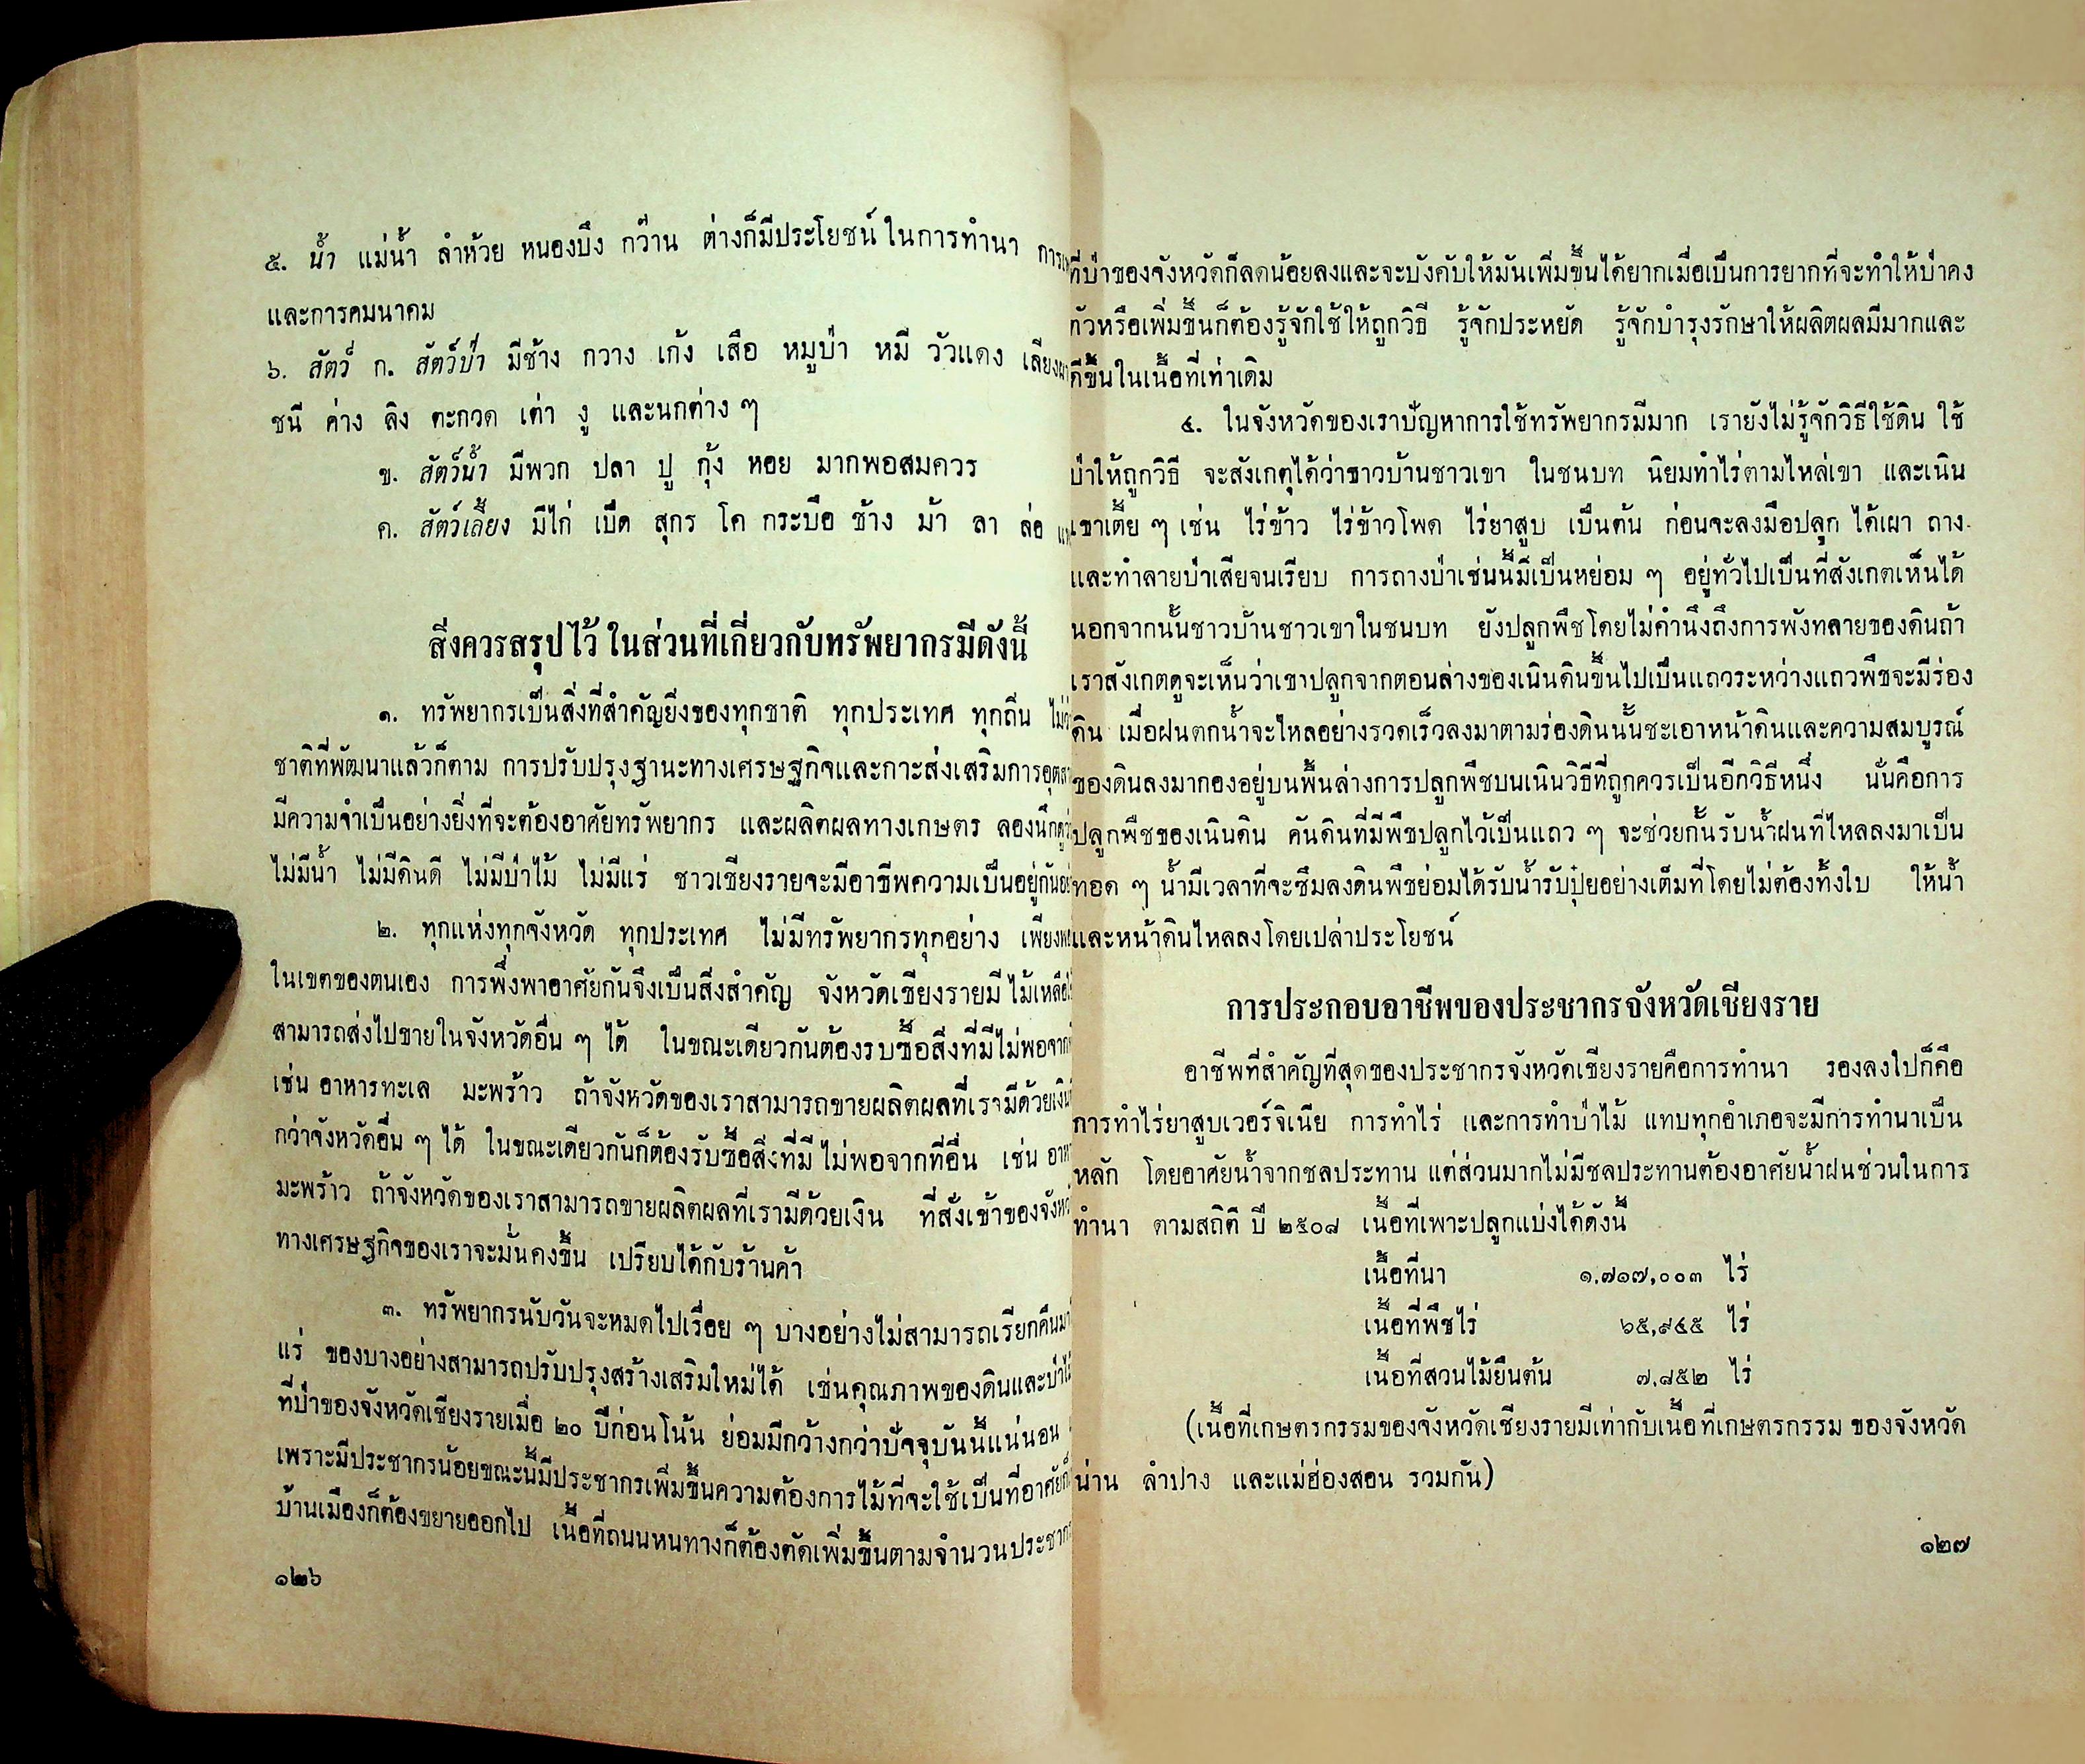 ๕. น้ำ แม่น้ำ ลำห้วย หนองบึง กว๊าน ต่างก็มีประโยชน์ ในการทำนา
และการคมนาคม
๖. สัตว์ ก. สัตว์ป่า มีช้าง กวาง เก้ง เสือ หมูป่า หมี วัวแดง
ชนี ค่าง ลิง ตะกวด เต่า งู และนกต่าง ๆ
ข. สัตว์น้ำ มีพวก ปลา ปู กุ้ง หอย มากพอสมควร
ค. สัตว์เลี้ยง มีไก่ เป็ด สุกร โค กระบือ ช้าง ม้า ลา ล่อ
สิ่งควรสรุปไว้ ในส่วนที่เกี่ยวกับทรัพยากรมีดังนี้
๑. ทรัพยากรเป็นสิ่งที่สำคัญยิ่งของทุกชาติ ทุกประเทศ ทุกถิ่น
ชาติที่พัฒนาแล้วก็ตาม การปรับปรุงฐานะทางเศรษฐกิจและกาะส่งเสริมการ
มีความจำเป็นอย่างยิ่งที่จะต้องอาศัยทรัพยากร และผลิตผลทางเกษตร
ไม่มีน้ำ ไม่มีดินดี ไม่มีป่าไม้ ไม่มีแร่ ชาวเชียงรายจะมีอาชีพความเป็นอยู่กัน
๒. ทุกแห่งทุกจังหวัด ทุกประเทศ ไม่มีทรัพยากรทุกอย่าง
ในเขตของตนเอง การพึ่งพาอาศัยกันจึงเป็นสิ่งสำคัญ จังหวัดเชียงรายมี
สามารถส่งไปขายในจังหวัดอื่น ๆ ได้ ในขณะเดียวกันต้องรบซื้อสิ่งที่มีไม่พอ
เช่น อาหารทะเล มะพร้าว ถ้าจังหวัดของเราสามารถขายผลิตผลที่เรามีด้วย
กว่าจังหวัดอื่น ๆ ได้ ในขณะเดียวกันก็ต้องรับซื้อสิ่งที่มี ไม่พอจากที่อื่น เช่น
มะพร้าว ถ้าจังหวัดของเราสามารถขายผลิตผลที่เรามีด้วยเงิน ที่สั่งเข้าของ
ทางเศรษฐกิจของเราจะมั่นคงขึ้น เปรียบได้กับร้านค้า
๓. ทรัพยากรนับวันจะหมดไปเรื่อย ๆ บางอย่างไม่สามารถเรียกคืน
แร่ ของบางอย่างสามารถปรับปรุงสร้างเสริมใหม่ได้ เช่นคุณภาพของดินและ
ที่ป่าของจังหวัดเชียงรายเมื่อ ๒๐ ปีก่อนโน้น ย่อมมีกว้างกว่าปัจจุบันนี้แน่นอน
เพราะมีประชากรน้อยขณะนี้มีประชากรเพิ่มขึ้นความต้องการไม้ที่จะใช้เป็นที่อาศัย
บ้านเมืองก็ต้องขยายออกไป เนื้อที่ถนนหนทางก็ต้องตัดเพิ่มขึ้นตามจำนวน
๑๒๖
ที่ป่าของจังหวัดก็ลดน้อยลงและจะบังคับให้มันเพิ่มขึ้นได้ยากเมื่อเป็นการยากที่จะทำให้ป่าคง
ตัวหรือเพิ่มขึ้นก็ต้องรู้จักใช้ให้ถูกวิธี รู้จักประหยัด รู้จักบำรุงรักษาให้ผลิตผลมีมากและ
ดีขึ้นในเนื้อที่เท่าเดิม
๔. ในจังหวัดของเราปัญหาการใช้ทรัพยากรมีมาก เรายังไม่รู้จักวิธีใช้ดิน ใช้
ป่าให้ถูกวิธี จะสังเกตุได้ว่าชาวบ้านชาวเขา ในชนบท นิยมทำไร่ตามไหล่เขา และเนิน
เขาเตี้ย ๆ เช่น ไร่ข้าว ไร่ข้าวโพด ไร่ยาสูบ เป็นต้น ก่อนจะลงมือปลูก ได้เผา ถาง
และทำลายป่าเสียจนเรียบ การถางป่าเช่นนี้มีเป็นหย่อม ๆ อยู่ทั่วไปเป็นที่สังเกตเห็นได้
นอกจากนั้นชาวบ้านชาวเขาในชนบท ยังปลูกพืชโดยไม่คำนึงถึงการพังทลายของดินถ้า
เราสังเกตดูจะเห็นว่าเขาปลูกจากตอนล่างของเนินดินขึ้นไปเป็นแถวระหว่างแถวพืชจะมีร่อง
ดิน เมื่อฝนตกน้ำจะไหลอย่างรวดเร็วลงมาตามร่องดินนั้นชะเอาหน้าดินและความสมบูรณ์
ของดินลงมากองอยู่บนพื้นล่างการปลูกพืชบนเนินวิธีที่ถูกควรเป็นอีกวิธีหนึ่ง นั่นคือการ
ปลูกพืชของเนินดิน คันดินที่มีพืชปลูกไว้เป็นแถว ๆ จะช่วยกั้นรับน้ำฝนที่ไหลลงมาเป็น
ทอด ๆ น้ำมีเวลาที่จะซึมลงดินพืชย่อมได้รับน้ำรับปุ๋ยอย่างเต็มที่โดยไม่ต้องทิ้งใบ ให้น้ำ
และหน้าดินไหลลงโดยเปล่าประโยชน์
การประกอบอาชีพของประชากรจังหวัดเชียงราย
อาชีพที่สำคัญที่สุดของประชากรจังหวัดเชียงรายคือการทำนา รองลงไปก็คือ
การทำไร่ยาสูบเวอร์จิเนีย การทำไร่ และการทำป่าไม้ แทบทุกอำเภอจะมีการทำนาเป็น
หลัก โดยอาศัยน้ำจากชลประทาน แต่ส่วนมากไม่มีชลประทานต้องอาศัยน้ำฝนช่วนในการ
ทำนา ตามสถิติ ปี ๒๕๐๘ เนื้อที่เพาะปลูกแบ่งได้ดังนี้
เนื้อที่นา ๑,๗๑๗,๐๐๓ ไร่
เนื้อที่พืชไร่ ๖๕,๙๔๕ ไร่
เนื้อที่สวนไม้ยืนต้น ๗,๘๕๒ ไร่
(เนื้อที่เกษตรกรรมของจังหวัดเชียงรายมีเท่ากับเนื้อที่เกษตรกรรม ของจังหวัด
น่าน ลำปาง และแม่ฮ่องสอน รวมกัน)
๑๒๗